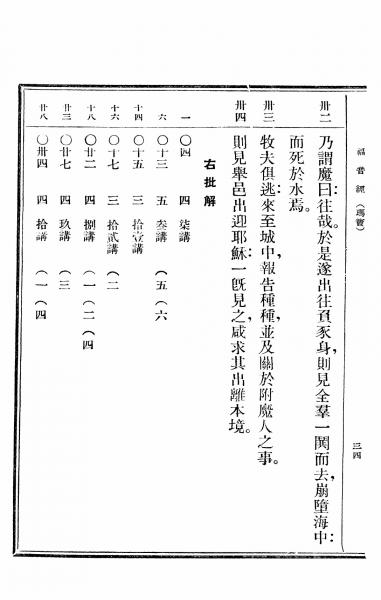 福音經（瑪竇）
三四
卅二 乃謂魔曰：往哉。於是遂出往負豕身，則見全羣一鬨而去，崩墮海中：
而死於水焉。
卅三 牧夫俱逃：來至城中，報告種種，並及關於附魔人之事。
卅四 則見舉邑出迎耶穌：一旣見之，咸求其出離本境。
右批解
一 〇四 四 柒講
六 〇十三 五 叁講 （五（六
十四 〇十五 三 拾壹講
十六 〇十七 三 拾貳講 （二
十八 〇廿二 四 捌講 （一（二（四
廿三 〇廿七 四 玖講 （三
廿八 〇卅四 四 拾講 （一（四